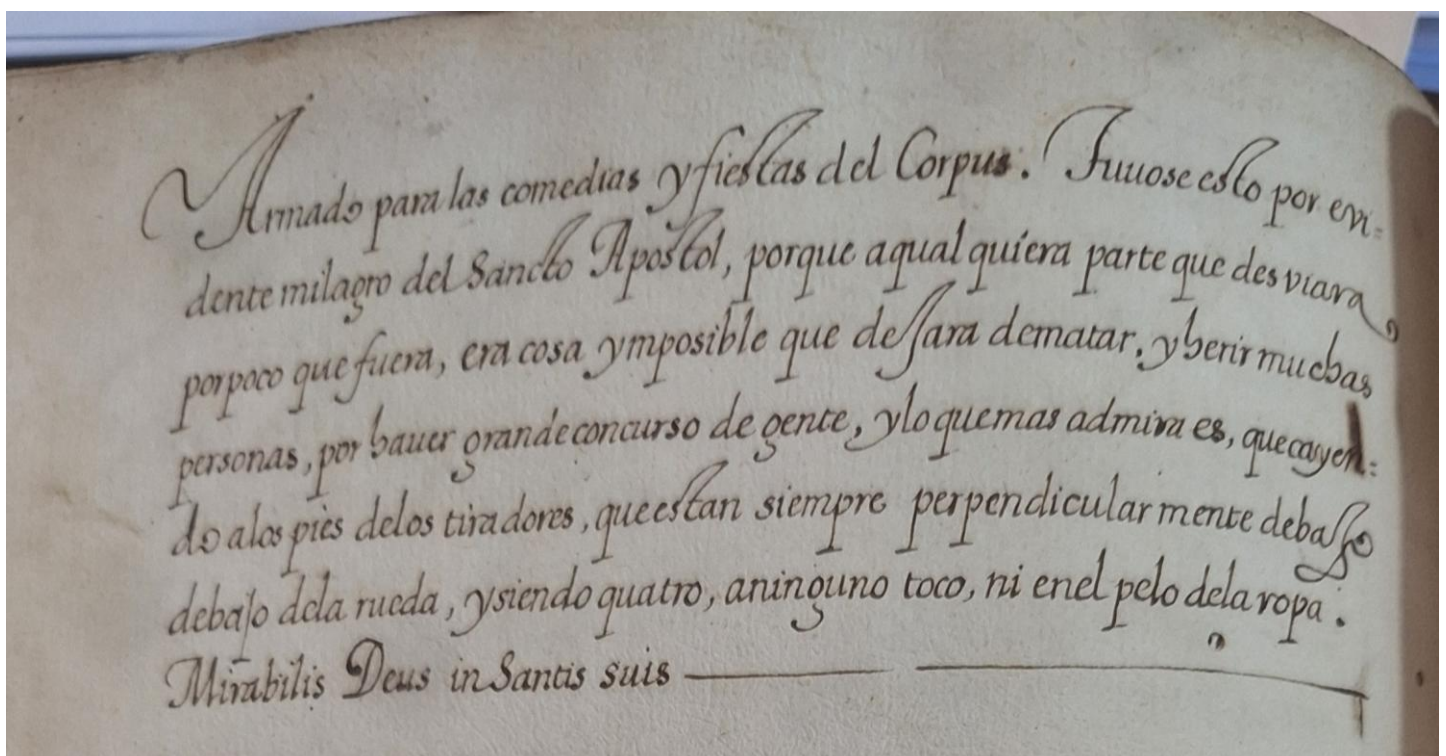 Armado para las comedias y fiestas del Corpus. Tuuose esto por evi=
dente milagro del Sancto Apostol, porque aqual quiera parte que desviara
porpoco que fuera, era cosa ymposible que dejara dematar, y herir muchas
personas, por hauer grande concurso de gente, y lo que mas admira es, que cayen=
do alos pies delos tiradores, que estan siempre perpendicular mente debajo
debajo dela rueda, y siendo quatro, aninguno toco, ni enel pelo dela ropa.
Mirabilis Deus in Santis suis